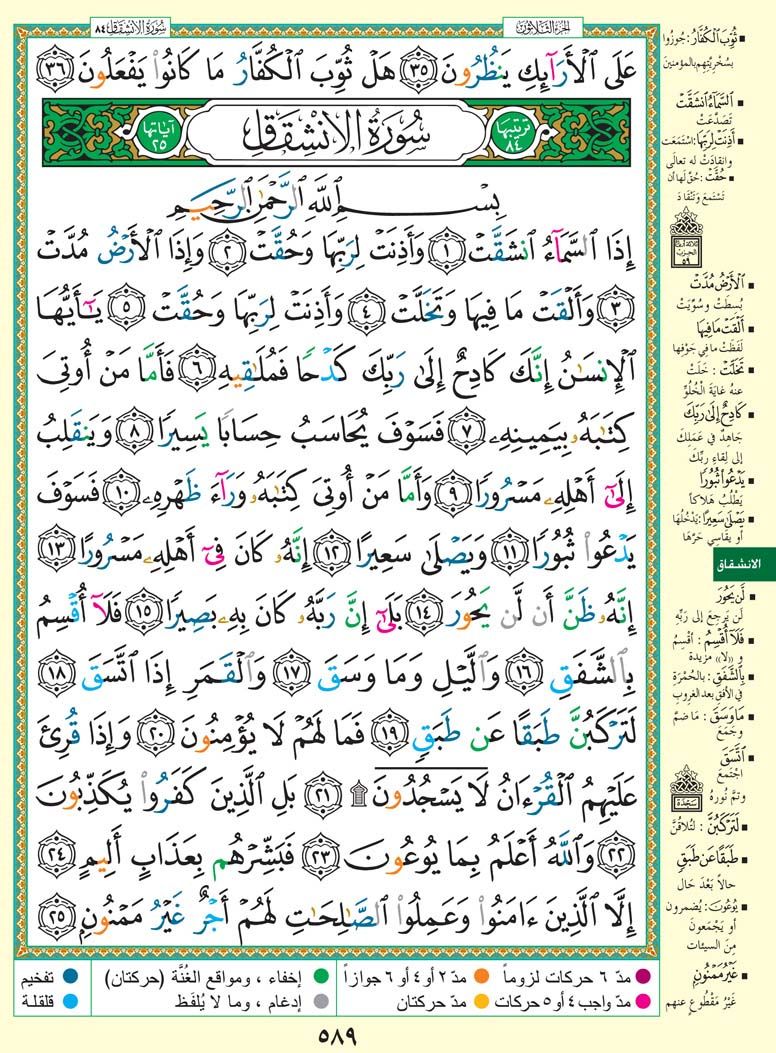 سورة الانشقاق ٨٤
الجزء الثلاثون
عَلَى ٱلْأَرَآئِكِ يَنظُرُونَ ٣٥ هَلْ ثُوِّبَ ٱلْكُفَّارُ مَا كَانُوا۟ يَفْعَلُونَ ٣٦
ترتيبها ٨٤
سُورَةُ الانْشِقَاقِ
آياتها ٢٥
بِسْمِ ٱللَّهِ ٱلرَّحْمَٰنِ ٱلرَّحِيمِ
إِذَا ٱلسَّمَآءُ ٱنشَقَّتْ ١ وَأَذِنَتْ لِرَبِّهَا وَحُقَّتْ ٢ وَإِذَا ٱلْأَرْضُ مُدَّتْ
٣ وَأَلْقَتْ مَا فِيهَا وَتَخَلَّتْ ٤ وَأَذِنَتْ لِرَبِّهَا وَحُقَّتْ ٥ يَٰٓأَيُّهَا
ٱلْإِنسَٰنُ إِنَّكَ كَادِحٌ إِلَىٰ رَبِّكَ كَدْحًا فَمُلَٰقِيهِ ٦ فَأَمَّا مَنْ أُوتِىَ
كِتَٰبَهُۥ بِيَمِينِهِۦ ٧ فَسَوْفَ يُحَاسَبُ حِسَابًا يَسِيرًا ٨ وَيَنقَلِبُ
إِلَىٰٓ أَهْلِهِۦ مَسْرُورًا ٩ وَأَمَّا مَنْ أُوتِىَ كِتَٰبَهُۥ وَرَآءَ ظَهْرِهِۦ ١٠ فَسَوْفَ
يَدْعُوا۟ ثُبُورًا ١١ وَيَصْلَىٰ سَعِيرًا ١٢ إِنَّهُۥ كَانَ فِىٓ أَهْلِهِۦ مَسْرُورًا ١٣
إِنَّهُۥ ظَنَّ أَن لَّن يَحُورَ ١٤ بَلَىٰٓ إِنَّ رَبَّهُۥ كَانَ بِهِۦ بَصِيرًا ١٥ فَلَآ أُقْسِمُ
بِٱلشَّفَقِ ١٦ وَٱلَّيْلِ وَمَا وَسَقَ ١٧ وَٱلْقَمَرِ إِذَا ٱتَّسَقَ ١٨
لَتَرْكَبُنَّ طَبَقًا عَن طَبَقٍ ١٩ فَمَا لَهُمْ لَا يُؤْمِنُونَ ٢٠ وَإِذَا قُرِئَ
عَلَيْهِمُ ٱلْقُرْءَانُ لَا يَسْجُدُونَ ۩ ٢١ بَلِ ٱلَّذِينَ كَفَرُوا۟ يُكَذِّبُونَ
٢٢ وَٱللَّهُ أَعْلَمُ بِمَا يُوعُونَ ٢٣ فَبَشِّرْهُم بِعَذَابٍ أَلِيمٍ ٢٤
إِلَّا ٱلَّذِينَ ءَامَنُوا۟ وَعَمِلُوا۟ ٱلصَّٰلِحَٰتِ لَهُمْ أَجْرٌ غَيْرُ مَمْنُونٍۭ ٢٥
ثُوِّبَ الكُفَّارُ: جُوزُوا
بسُخْرِيَّتِهم بالمؤمنين
السَّمَاءُ انشَقَّتْ
تَصَدَّعَتْ
أَذِنَتْ لِرَبِّهَا: اسْتَمَعَت
وانقادَتْ له تعالى
حُقَّتْ: حُقَّ لها أن
تَسْتَمِعَ وتَنْقَادَ
الأَرْضُ مُدَّتْ
بُسطَتْ وسُوِّيَتْ
أَلْقَتْ مَا فِيهَا
لَفَظَتْ ما في جَوْفِها
تَخَلَّتْ: خَلَتْ
عنه غايةَ الْخُلُوِّ
كَادِحٌ إِلَى رَبِّكَ
جَاهِدٌ في عَمَلِكَ
إلى لقاءِ ربِّكَ
يَدْعُوا ثُبُورًا
يَطْلُبُ هَلاكاً
يَصْلَى سَعِيرًا: يَدْخُلُهَا
أو يقاسي حَرَّهَا
الانشقاق
لَّن يَحُورَ
لَن يَرْجِعَ إلى رَبِّهِ
فَلَا أُقْسِمُ: أُقْسِمُ
و «لا» مزيدة
بِالشَّفَقِ: بالحُمْرَة
في الأفق بعد الغروبِ
مَا وَسَقَ: ما ضمَّ
وجَمَعَ
اتَّسَقَ
اجْتَمَعَ
وتمَّ نورهُ
سَجْدَة
لَتَرْكَبُنَّ: لَتُلاقُنَّ
طَبَقًا عَن طَبَقٍ
حالاً بَعْدَ حَال
يُوعُونَ: يُضمرون
أو يَجْمَعونَ
مِنَ السيئات
غَيْرُ مَمْنُونٍ
غَيْرُ مَقْطُوعٍ عنهم
مدّ ٦ حركات لزوماً
مدّ ٢ أو ٤ أو ٦ جوازاً
إخفاء، ومواقع الغُنَّة (حركتان)
تفخيم
مدّ واجب ٤ أو ٥ حركات
مدّ حركتان
إدغام، وما لا يُلفَظ
قلقلة
٥٨٩